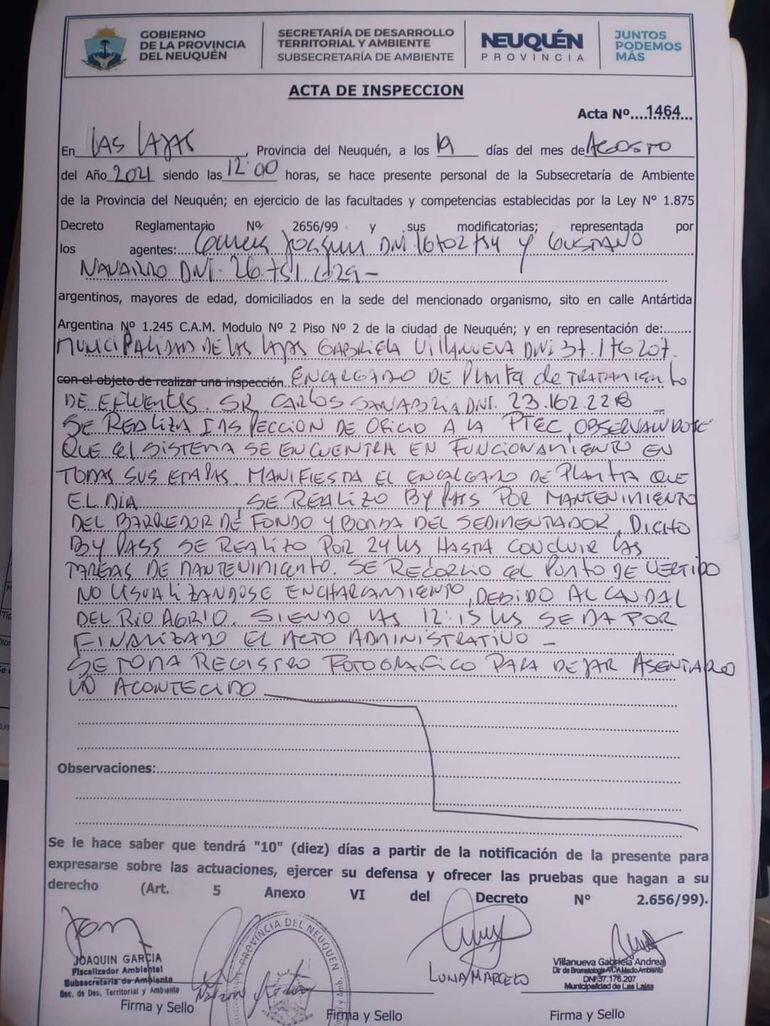 GOBIERNO
DE LA PROVINCIA
DEL NEUQUÉN
SECRETARÍA DE DESARROLLO
TERRITORIAL Y AMBIENTE
SUBSECRETARÍA DE AMBIENTE
NEUQUÉN
PROVINCIA
JUNTOS
PODEMOS
MÁS
ACTA DE INSPECCION
Acta Nº....1464...
En LAS LAJAS, Provincia del Neuquén, a los 19 días del mes de AGOSTO
del Año 2021 siendo las 12:00 horas, se hace presente personal de la Subsecretaría de Ambiente
de la Provincia del Neuquén; en ejercicio de las facultades y competencias establecidas por la Ley N° 1.875
Decreto Reglamentario Nº 2656/99 y sus modificatorias; representada por
los agentes: JOAQUIN DNI y GUSTAVO
NAVARRO DNI. 26.751.629-
argentinos, mayores de edad, domiciliados en la sede del mencionado organismo, sito en calle Antártida
Argentina Nº 1.245 C.A.M. Modulo Nº 2 Piso Nº 2 de la ciudad de Neuquén; y en representación de:.......
MUNICIPALIDAD DE LAS LAJAS GABRIELA VILLANUEVA DNI 37.176207.
con el objeto de realizar una inspección ENCARGADO DE PLANTA de TRATAMIENTO
DE EFLUENTES. SR CARLOS SANABRIA DNI. 23.162.228
SE REALIZA INSPECCIÓN DE OFICIO A LA PTEC, OBSERVANDOSE
QUE EL SISTEMA SE ENCUENTRA EN FUNCIONAMIENTO EN
TODAS SUS ETAPAS. MANIFIESTA EL ENCARGADO DE PLANTA QUE
EL DIA SE REALIZO BY PASS POR MANTENIMIENTO
DEL BARREDOR DE FONDO Y BOMBA DEL SEDIMENTADOR, DICHO
BY PASS SE REALIZO POR 24 HS HASTA CONCLUIR LAS
TAREAS DE MANTENIMIENTO. SE RECORRIO EL PUNTO DE VERTIDO
NO VISUALIZANDOSE ENCHARCAMIENTO, DEBIDO AL CAUDAL
DEL RIO AGRIO. SIENDO LAS 12:15 HS SE DA POR
FINALIZADO EL ACTO ADMINISTRATIVO -
SE TOMA REGISTRO FOTOGRAFICO PARA DEJAR ASENTADO
LO ACONTECIDO
Observaciones:
Se le hace saber que tendrá "10" (diez) días a partir de la notificación de la presente para
expresarse sobre las actuaciones, ejercer su defensa y ofrecer las pruebas que hagan a su
derecho (Art. 5 Anexo VI del Decreto N° 2.656/99).
JOAQUIN GARCIA
Fiscalizador Ambiental
Subsecretaría de Ambiente
Sec. de Des. Territorial y Ambiente
Firma y Sello
PROVINCIA DEL NEUQUÉN
LUNA MARCELO
Firma y Sello
Villanueva Gabriela Andrea
Dir de Bromatologia Medio Ambiente
DNI 37.176.207
Municipalidad de Las Lajas
Firma y Sello